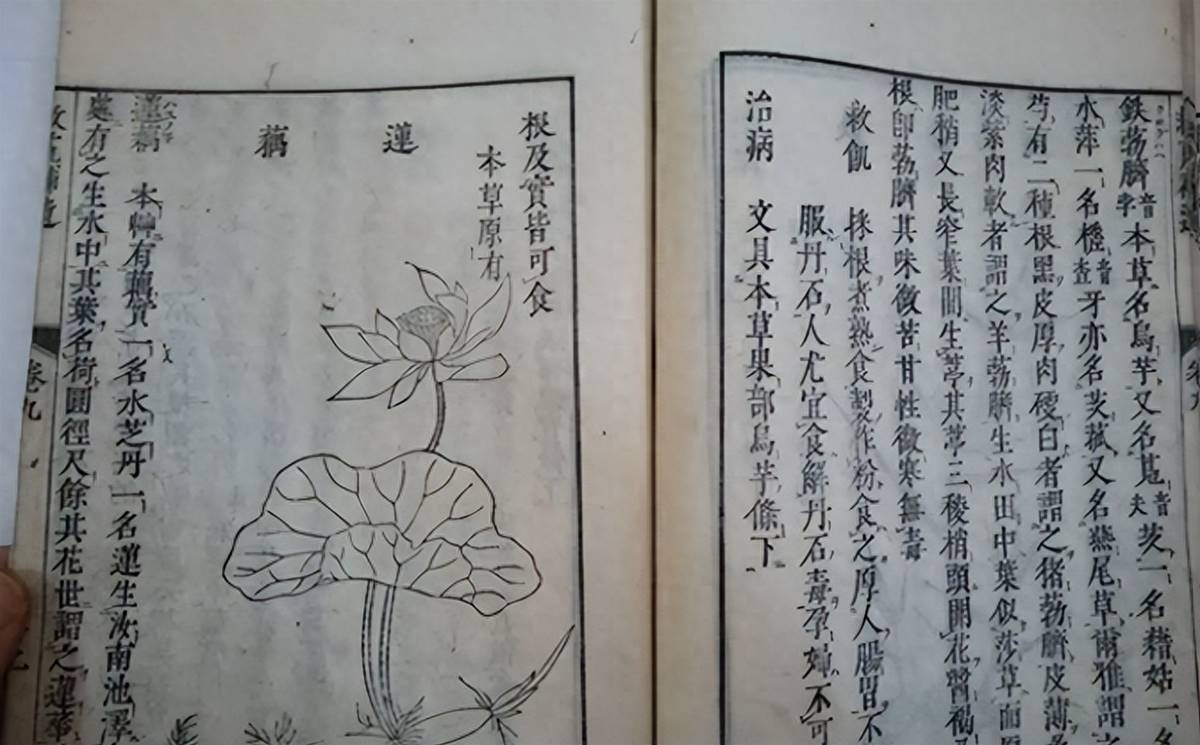 鉄葧臍音孛本草名烏芋又名鳧音夫茨一名藉姑一名
水萍一名槎音查牙亦名茨菰又名燕尾草爾雅謂之
芍有二種根黑皮厚肉硬白者謂之猪葧臍皮薄
淡紫肉軟者謂之羊葧臍生水田中葉似莎草而厚
肥梢又長窄葉間生葶其葶三稜梢頭開花醤褐
根即葧臍其味微苦甘性微寒無毒
救飢 採根煮熟食製作粉食之厚人腸胃不
服丹石人尤宜食解丹石毒孕婦不可
治病 文具本草果部烏芋條下
根及實皆可食
本草原有
蓮藕
蓮藕 本艸有藕實一名水芝丹一名蓮生汝南池澤
處有之生水中其葉名荷圓徑尺餘其花世謂之蓮華
卷九